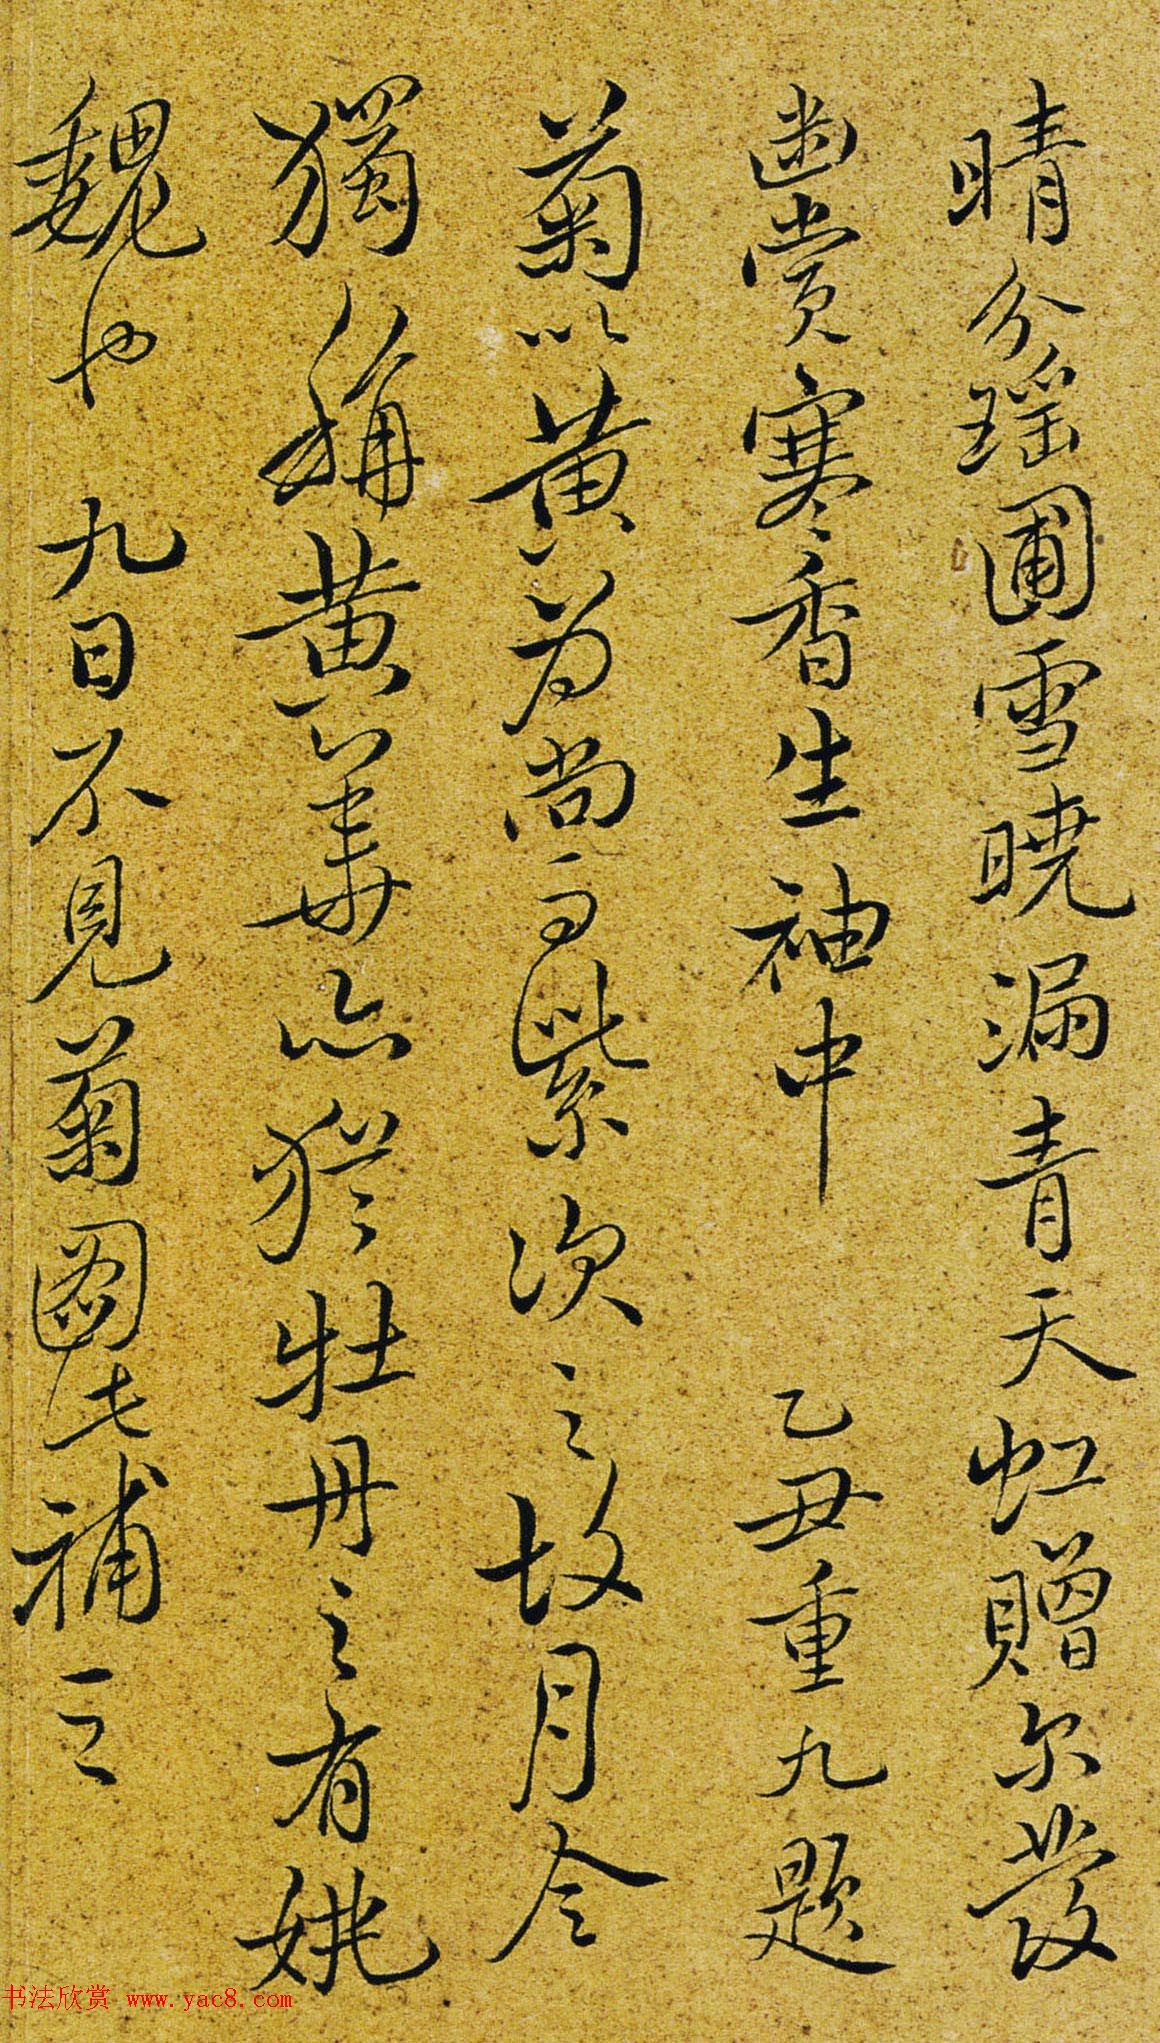 晴分瑶圃雪曉漏青天虹贈尔發
幽賞寒香生袖中 乙丑重九題
菊以黄为尚而紫次之故月令
獨稱黄華亦猶牡丹之有姚
魏也 九日不見菊圖此補之
书法欣赏 www.yac8.com